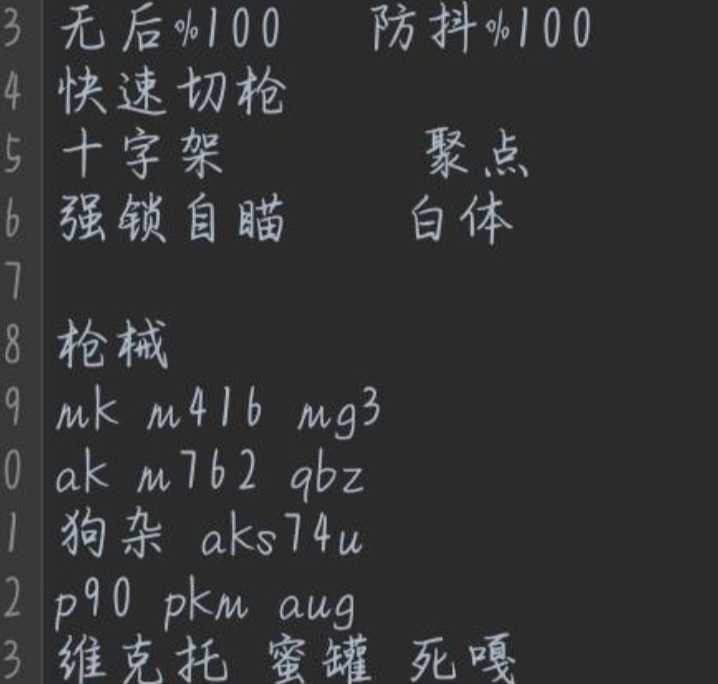 3 无后%100 防抖%100
4 快速切枪
5 十字架 聚点
6 强锁自瞄 白体
7
8 枪械
9 mk m416 mg3
0 ak m762 qbz
1 狗杂 aks74u
2 p90 pkm aug
3 维克托 蜜罐 死嘎